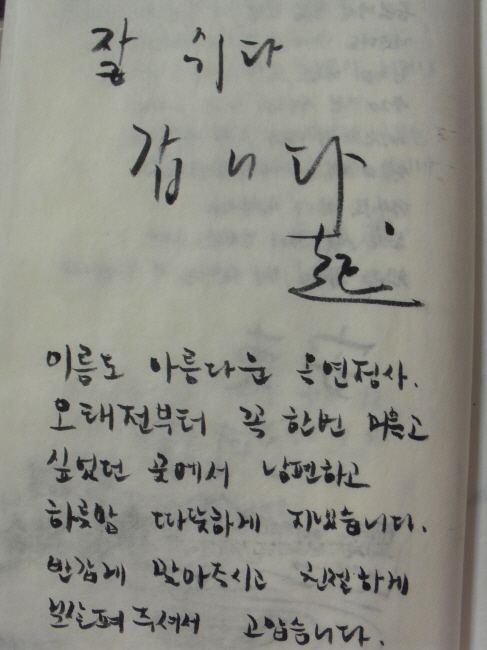 잘 쉬다
갑니다.
이름도 아름다운 옥연정사.
오래전부터 꼭 한번 머물고
싶었던 곳에서 남편하고
하룻밤 따뜻하게 지냈습니다.
반갑게 맞아주시고 친절하게
보살펴 주셔서 고맙습니다.